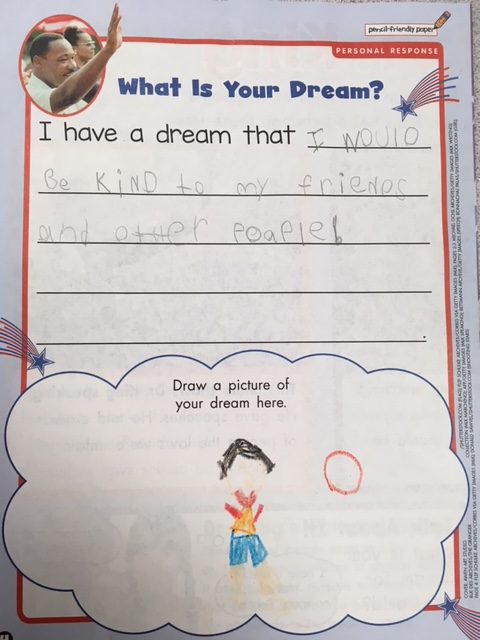 pencil-friendly paper
PERSONAL RESPONSE
What Is Your Dream?
I have a dream that I WOULD
Be KiND to my friends
and other Poaple!
.
Draw a picture of
your dream here.